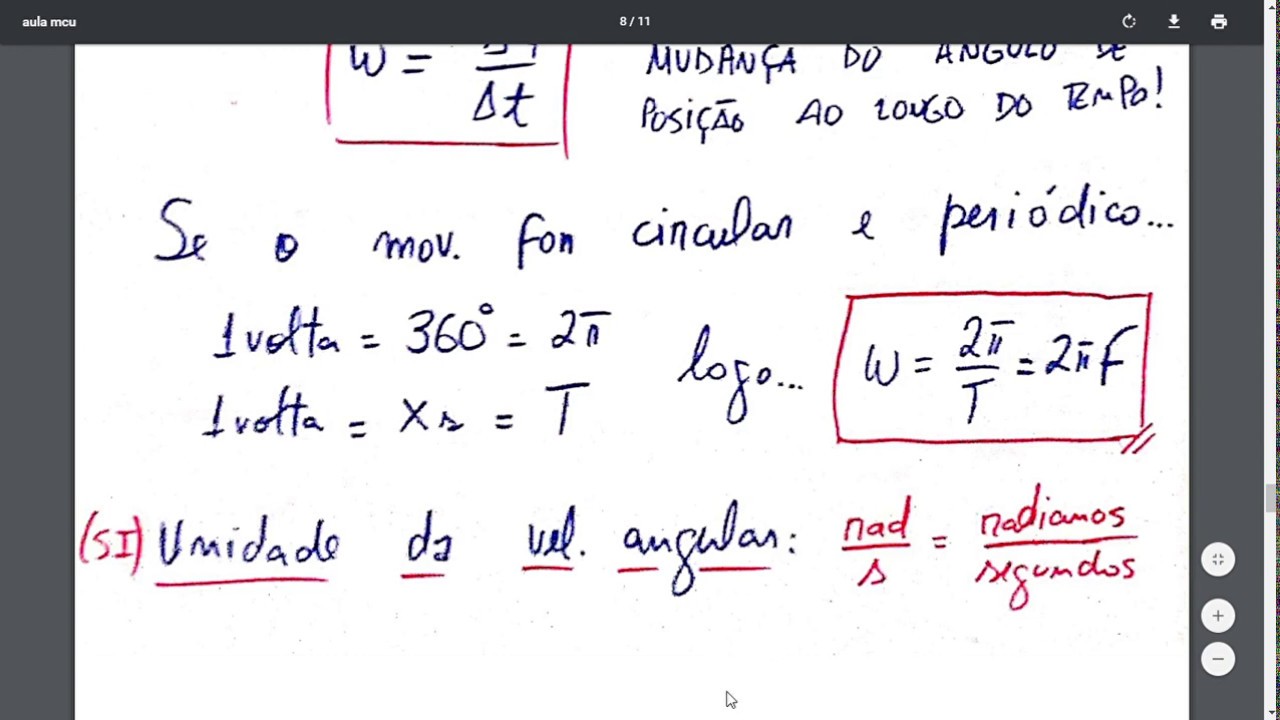 aula mcu
8 / 11
W = Δφ/Δt
MUDANÇA DO ÂNGULO DE
POSIÇÃO AO LONGO DO TEMPO!
Se o mov. for circular e periódico...
1 volta = 360° = 2π
1 volta = X s = T
logo... W = 2π/T = 2πF
(SI) Unidade da vel. angular: rad/s = radianos/segundos